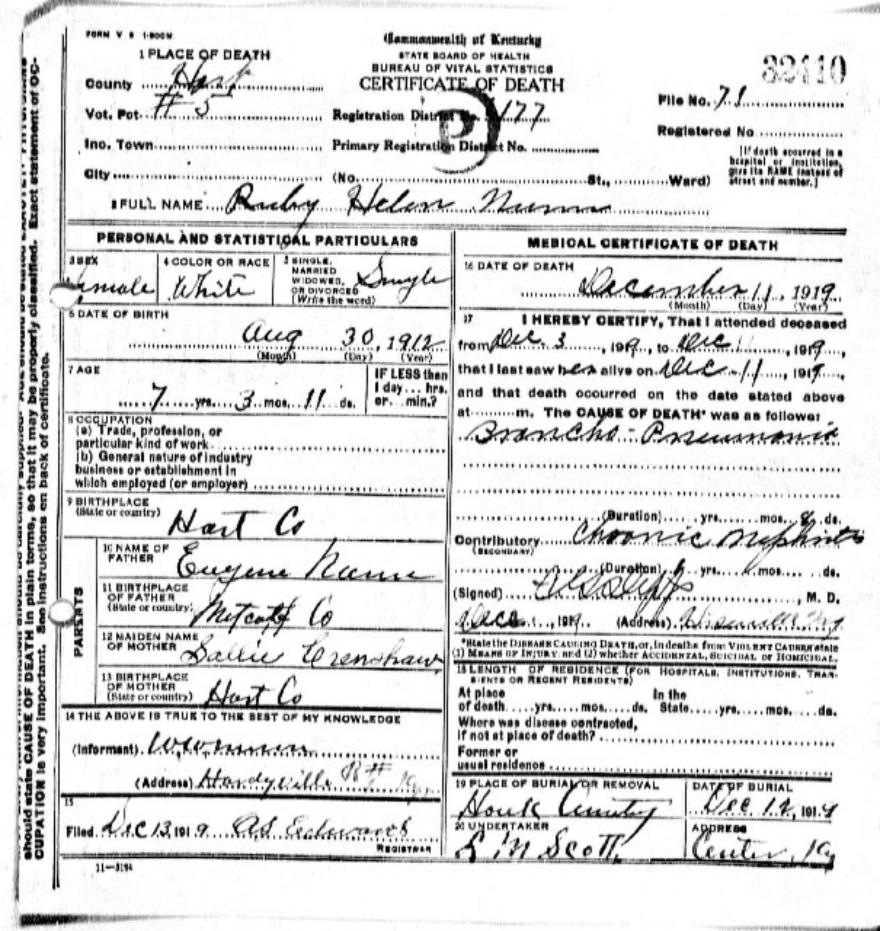 FORM V S 1-500M
Commonwealth of Kentucky
STATE BOARD OF HEALTH
BUREAU OF VITAL STATISTICS
CERTIFICATE OF DEATH
32110
1 PLACE OF DEATH
County Hart
Vot. Pot. # 5
Registration District No. 477
File No. 71
Inc. Town
Primary Registration District No.
Registered No
City (No. St., Ward)
[If death occurred in a
hospital or institution,
give its NAME instead of
street and number.]
P
2 FULL NAME Ruby Helen Nunn
PERSONAL AND STATISTICAL PARTICULARS
3 SEX
Female
4 COLOR OR RACE
White
5 SINGLE,
MARRIED
WIDOWED,
OR DIVORCED
(Write the word)
Single
6 DATE OF BIRTH
Aug 30, 1912
(Month) (Day) (Year)
7 AGE
7 yrs. 3 mos. 11 ds.
IF LESS than
1 day... hrs.
or... min.?
8 OCCUPATION
(a) Trade, profession, or
particular kind of work
(b) General nature of industry
business or establishment in
which employed (or employer)
9 BIRTHPLACE
(State or country)
Hart Co
PARENTS
10 NAME OF
FATHER
Eugene Nunn
11 BIRTHPLACE
OF FATHER
(State or country)
Metcalf Co
12 MAIDEN NAME
OF MOTHER
Sallie Crenshaw
13 BIRTHPLACE
OF MOTHER
(State or country)
Hart Co
14 THE ABOVE IS TRUE TO THE BEST OF MY KNOWLEDGE
(Informant)
(Address) Hardyville R# Ky
15
Filed Dec 13, 1919 AS Edwards
REGISTRAR
11—3184
MEDICAL CERTIFICATE OF DEATH
16 DATE OF DEATH
December 11, 1919
(Month) (Day) (Year)
17 I HEREBY CERTIFY, That I attended deceased
from Dec. 3, 1919, to Dec 11, 1919,
that I last saw her alive on Dec 11, 1919,
and that death occurred on the date stated above
at m. The CAUSE OF DEATH* was as follows:
Broncho-Pneumonia
(Duration) yrs. mos. 8 ds.
Contributory Chronic Nephritis
(SECONDARY)
(Duration) yrs. mos. ds.
(Signed) M. D.
Dec , 1919 (Address)
*State the DISEASE CAUSING DEATH, or, in deaths from VIOLENT CAUSES state
(1) MEANS OF INJURY; and (2) whether ACCIDENTAL, SUICIDAL OR HOMICIDAL.
18 LENGTH OF RESIDENCE (FOR HOSPITALS, INSTITUTIONS, TRAN-
SIENTS OR RECENT RESIDENTS)
At place In the
of death yrs. mos. ds. State yrs. mos. ds.
Where was disease contracted,
if not at place of death?
Former or
usual residence
19 PLACE OF BURIAL OR REMOVAL
Houk Cemetry
DATE OF BURIAL
Dec 12, 1919
20 UNDERTAKER
L M Scott
ADDRESS
Center, Ky
should state CAUSE OF DEATH in plain terms, so that it may be properly classified. Exact statement of OC-
CUPATION is very important. See instructions on back of certificate.